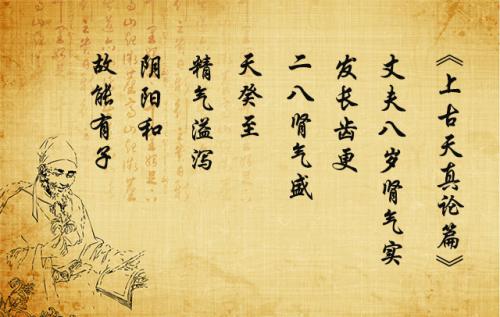 《上古天真论篇》
丈夫八岁肾气实
发长齿更
二八肾气盛
天癸至
精气溢泻
阴阳和
故能有子